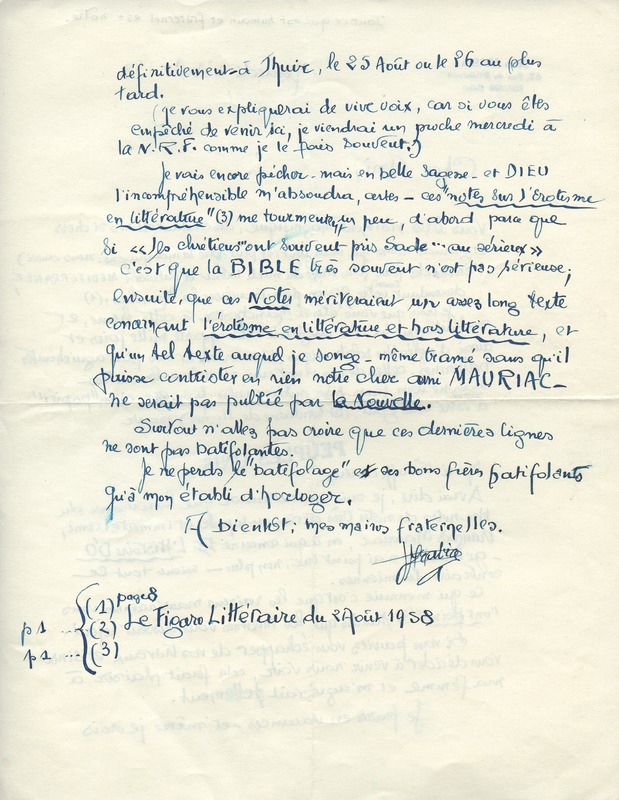 définitivement à Thuir, le 25 Août ou le 26 au plus
tard.
(je vous expliquerai de vive voix, car si vous êtes
empêché de venir ici, je viendrai un proche mercredi à
la N.R.F. comme je le fais souvent.)
Je vais encore pécher - mais en belle sagesse - et DIEU
l'incompréhensible m'absoudra, certes - ces "notes sur l'Erotisme
en littérature" (3) me tourmentent un peu, d'abord parce que
si « "les chrétiens" ont souvent pris Sade... au sérieux »
c'est que la BIBLE très souvent n'est pas sérieuse ;
ensuite, que ces Notes mériteraient un assez long texte
concernant l'érotisme en littérature et hors littérature, et
qu'un tel texte auquel je songe - même tramé sans qu'il
puisse contrister en rien notre cher ami MAURIAC -
ne serait pas publié par la Nouvelle.
Surtout n'allez pas croire que ces dernières lignes
ne sont pas batifolantes.
Je ne perds le "batifolage" et ses bons frères batifolants
qu'à mon établi d'horloger.
A bientôt ; mes mains fraternelles.
(1) page 8
p 1 ... (2) Le Figaro Littéraire du 2 Août 1958
p 1 ... (3)